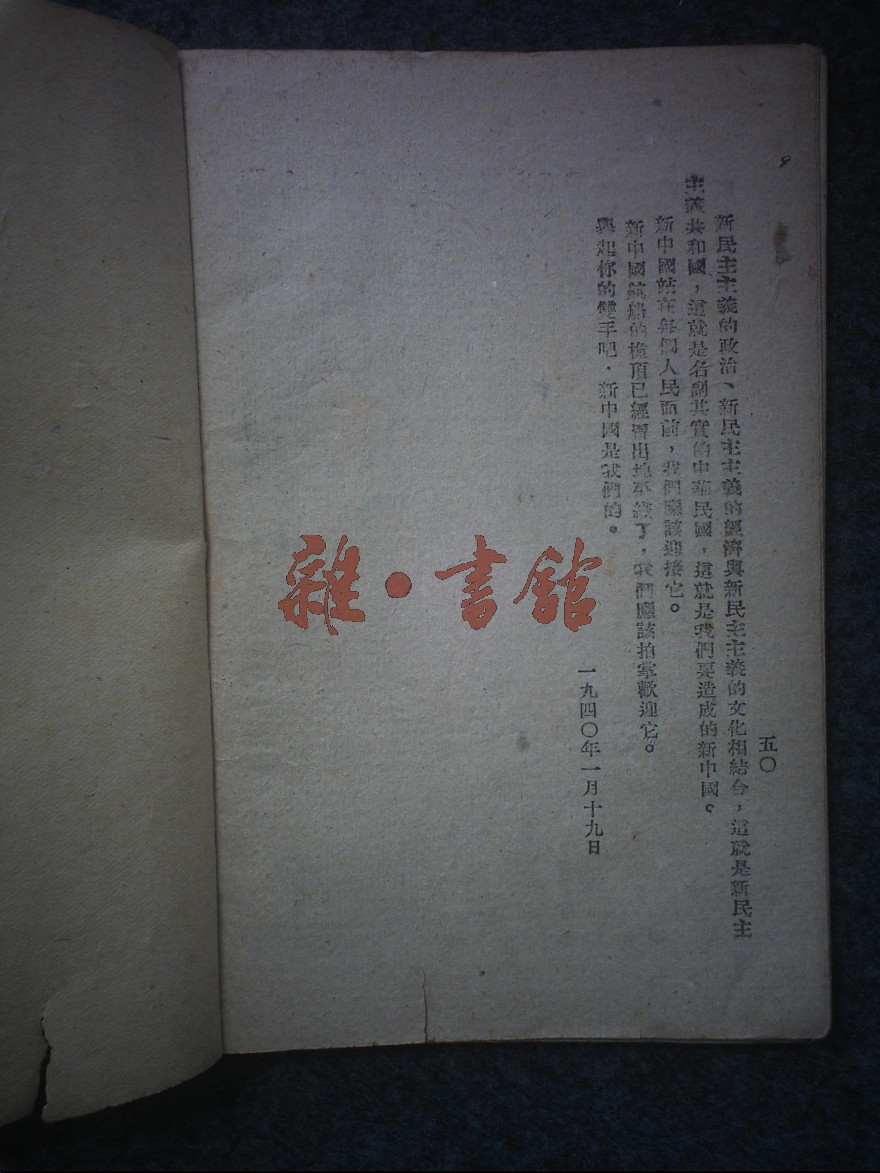 五〇
新民主主義的政治、新民主主義的經濟與新民主主義的文化相結合，這就是新民主
主義共和國，這就是名副其實的中華民國，這就是我們要造成的新中國。
新中國站在每個人民面前，我們應該迎接它。
新中國航船的桅頂已經冒出地平綫了，我們應該拍掌歡迎它。
舉起你的雙手吧，新中國是我們的。
一九四〇年一月十九日
雜·書館